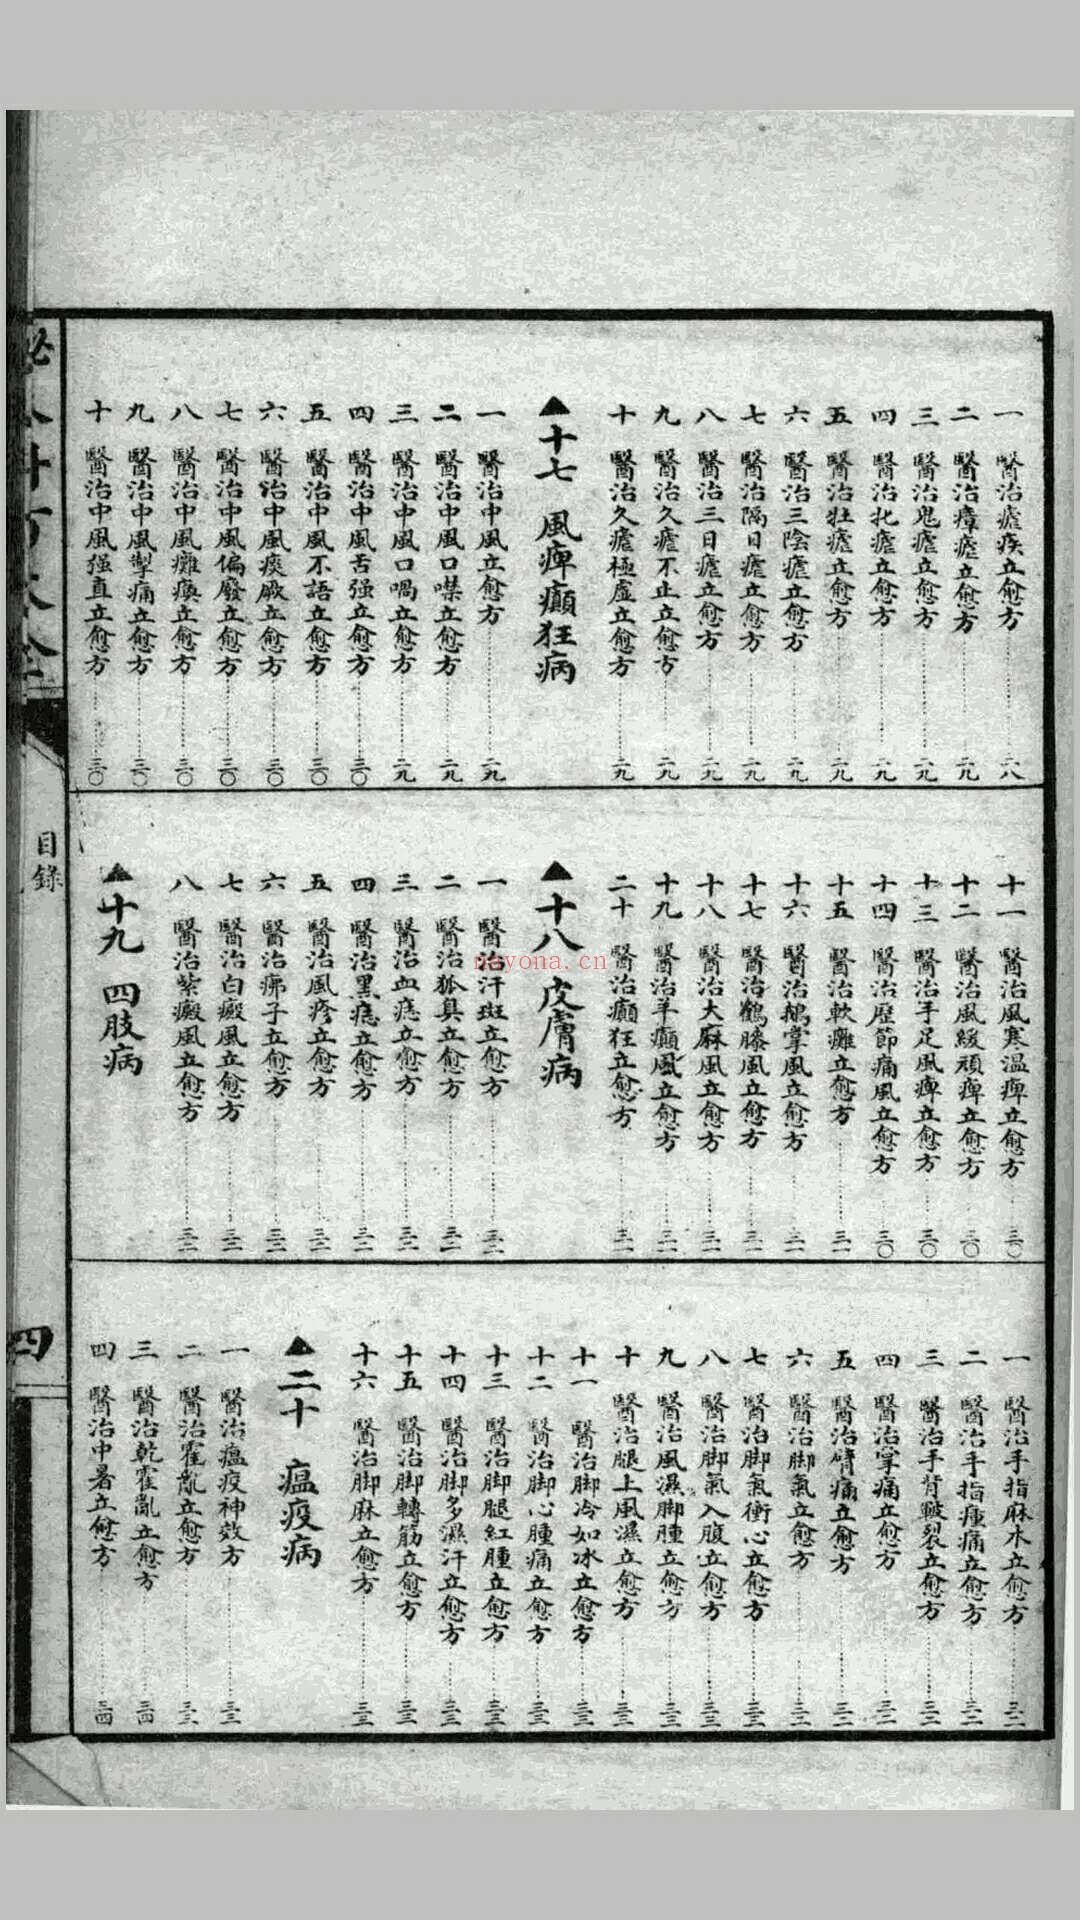 一 醫治瘧疾立愈方 二八
二 醫治瘴瘧立愈方 二九
三 醫治鬼瘧立愈方 二九
四 醫治牝瘧立愈方 二九
五 醫治牡瘧立愈方 二九
六 醫治三陰瘧立愈方 二九
七 醫治隔日瘧立愈方 二九
八 醫治三日瘧立愈方 二九
九 醫治久瘧不止立愈方 二九
十 醫治久瘧極虛立愈方 二九
▲十七 風痺癲狂病
一 醫治中風立愈方 二九
二 醫治中風口噤立愈方 二九
三 醫治中風口喎立愈方 二九
四 醫治中風舌强立愈方 三〇
五 醫治中風不語立愈方 三〇
六 醫治中風痰厥立愈方 三〇
七 醫治中風偏廢立愈方 三〇
八 醫治中風癱瘓立愈方 三〇
九 醫治中風掣痛立愈方 三〇
十 醫治中風强直立愈方 三〇
十一 醫治風寒溫痺立愈方 三〇
十二 醫治風緩頑痺立愈方 三〇
十三 醫治手足風痺立愈方 三〇
十四 醫治歷節痛風立愈方 三〇
十五 醫治軟癱立愈方 三一
十六 醫治鵝掌風立愈方 三一
十七 醫治鶴膝風立愈方 三一
十八 醫治大麻風立愈方 三一
十九 醫治羊癲風立愈方 三一
二十 醫治癲狂立愈方 三一
▲十八 皮膚病
一 醫治汗斑立愈方 三二
二 醫治狐臭立愈方 三二
三 醫治血痣立愈方 三二
四 醫治黑痣立愈方 三二
五 醫治風疹立愈方 三二
六 醫治疿子立愈方 三二
七 醫治白癜風立愈方 三二
八 醫治紫癜風立愈方 三二
▲十九 四肢病
一 醫治手指麻木立愈方 三二
二 醫治手指瘇痛立愈方 三二
三 醫治手背皸裂立愈方 三二
四 醫治掌痛立愈方 三二
五 醫治臂痛立愈方 三二
六 醫治脚氣立愈方 三三
七 醫治脚氣衝心立愈方 三三
八 醫治脚氣入腹立愈方 三三
九 醫治風濕脚腫立愈方 三三
十 醫治腿上風濕立愈方 三三
十一 醫治脚冷如冰立愈方 三三
十二 醫治脚心腫痛立愈方 三三
十三 醫治脚腿紅腫立愈方 三三
十四 醫治脚多濕汗立愈方 三三
十五 醫治脚轉筋立愈方 三三
十六 醫治脚麻立愈方 三三
▲二十 瘟疫病
一 醫治瘟疫神效方 三三
二 醫治霍亂立愈方 三三
三 醫治乾霍亂立愈方 三四
四 醫治中暑立愈方 三四
目錄
四
nayona.cn